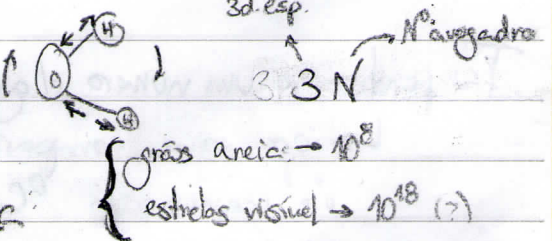 3d. esp.
H
Nº avogadro
O
3 3 N
H
grãos areia → 10⁸
estrelas visível → 10¹⁸ (?)